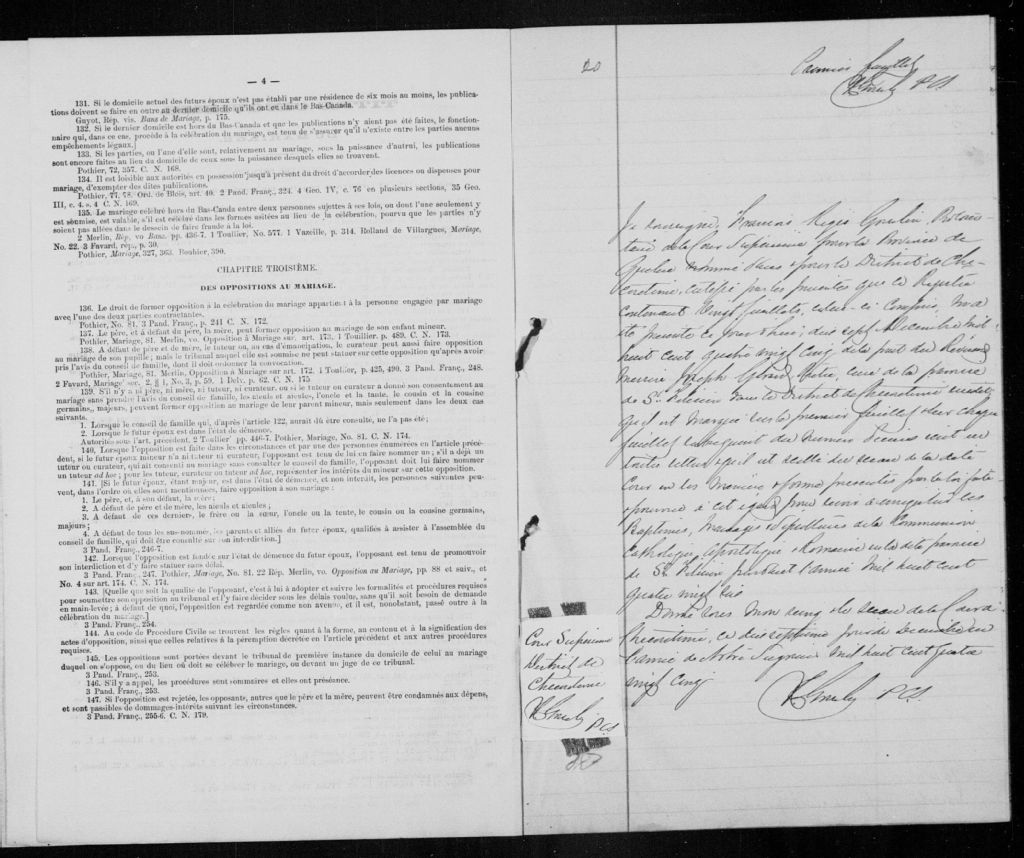 — 4 —
131. Si le domicile actuel des futurs époux n'est pas établi par une résidence de six mois au moins, les publica-
tions doivent se faire en outre au dernier domicile qu'ils ont eu dans le Bas-Canada.
Guyot, Rép. vis. Bans de Mariage, p. 175.
132. Si le dernier domicile est hors du Bas-Canada et que les publications n'y aient pas été faites, le fonction-
naire qui, dans ce cas, procède à la célébration du mariage, est tenu de s'assurer qu'il n'existe entre les parties aucuns
empêchements légaux.]
133. Si les parties, ou l'une d'elle sont, relativement au mariage, sous la puissance d'autrui, les publications
sont encore faites au lieu du domicile de ceux sous la puissance desquels elles se trouvent.
Pothier, 72, 357. C. N. 168.
134. Il est loisible aux autorités en possession jusqu'à présent du droit d'accorder des licences ou dispenses pour
mariage, d'exempter des dites publications.
Pothier, 77, 78. Ord. de Blois, art. 40. 2 Pand. Franç., 324. 4 Geo. IV, c. 76 en plusieurs sections, 35 Geo.
III, c. 4. s. 4 C. N. 169.
135. Le mariage célébré hors du Bas-Canda entre deux personnes sujettes à ses lois, ou dont l'une seulement y
est soumise, est valable, s'il est célébré dans les formes usitées au lieu de la célébration, pourvu que les parties n'y
soient pas allées dans le dessein de faire fraude à la loi.
2 Merlin, Rép. vo Bans. pp. 436-7. 1 Toullier, No. 577. 1 Vazeille, p. 314. Rolland de Villargues, Mariage,
No. 22. 3 Favard, rép., p. 30.
Pothier, Mariage, 327, 363. Bouhier, 390.
CHAPITRE TROISIÈME.
DES OPPOSITIONS AU MARIAGE.
136. Le droit de former opposition à la célébration du mariage appartient à la personne engagée par mariage
avec l'une des deux parties contractantes.
Pothier, No. 81. 3 Pand. Franç., p. 241 C. N. 172.
137. Le père, et à défaut du père, la mère, peut former opposition au mariage de son enfant mineur.
Pothier, Mariage, 81. Merlin, vo. Opposition à Mariage sur. art. 173. 1 Touillier. p. 489. C. N. 173.
138. A défaut de père et de mère, le tuteur ou, au cas d'émancipation, le curateur peut aussi faire opposition
au mariage de son pupille; mais le tribunal auquel elle est soumise ne peut statuer sur cette opposition qu'après avoir
pris l'avis du conseil de famille, dont il doit ordonner la convocation.
Pothier, Mariage, 81. Merlin, Opposition à Mariage sur art. 172. 1 Toullier, p. 425, 490. 3 Pand. Franç., 248.
2 Favard, Mariage sec. 2, § 1, No. 3, p. 59. 1 Delv. p. 62. C. N. 175
139. S'il n'y a ni père, ni mère, ni tuteur, ni curateur, ou si le tuteur ou curateur a donné son consentement au
mariage sans prendre l'avis du conseil de famille, les aïeuls et aïeules, l'oncle et la tante, le cousin et la cousine
germains, majeurs, peuvent former opposition au mariage de leur parent mineur, mais seulement dans les deux cas
suivants.
1. Lorsque le conseil de famille qui, d'après l'article 122, aurait dû être consulte, ne l'a pas été;
2. Lorsque le futur époux est dans l'état de démence.
Autorités sous l'art. précédent. 2 Toullier pp. 446-7. Pothier, Mariage, No. 81. C. N. 174.
140. Lorsque l'opposition est faite dans les circonstances et par une des personnes énumérées en l'article précé-
dent, si le futur époux mineur n'a ni tuteur ni curateur, l'opposant est tenu de lui en faire nommer un; s'il a déjà un
tuteur ou curateur, qui ait consenti au mariage sans consulter le conseil de famille, l'opposant doit lui faire nommer
un tuteur ad hoc; pour les tuteur, curateur ou tuteur ad hoc, représenter les intérêts du mineur sur cette opposition.
141. [Si le futur époux, étant majeur, est dans l'état de démence, et non interdit, les personnes suivantes peu-
vent, dans l'ordre où elles sont mentionnées, faire opposition à son mariage:
1. Le père, et, à son défaut, la mère;
2. A défaut de père et de mère, les aïeuls et aïeules;
3. A défaut de ces derniers, le frère ou la sœur, l'oncle ou la tente, le cousin ou la cousine germains,
majeurs;
4. A défaut de tous les sus-nommés, les parents et alliés du futur époux, qualifiés à assister à l'assemblée du
conseil de famille, qui doit être consulte sur son interdiction.]
3 Pand. Franç., 246-7.
142. Lorsque l'opposition est fondée sur l'état de démence du futur époux, l'opposant est tenu de promouvoir
son interdiction et d'y faire statuer sans délai.
3 Pand. Franç., 247. Pothier, Mariage, No. 81. 22 Rép. Merlin, vo. Opposition au Mariage, pp 88 et suiv., et
No. 4 sur art. 174. C. N. 174.
143. [Quelle que soit la qualité de l'opposant, c'est à lui à adopter et suivre les formalités et procédures requises
pour soumettre son opposition au tribunal et l'y faire décider sous les délais voulus, sans qu'il soit besoin de demande
en main-levée; à défaut de quoi, l'opposition est regardée comme non avenue, et il est, nonobstant, passé outre à la
célébration du mariage.]
3 Pand. Franç., 254.
144. Au code de Procédure Civile se trouvent les règles quant à la forme, au contenu et à la signification des
actes d'opposition, ainsi que celles relatives à la péremption décrétée en l'article précédent et aux autres procédures
requises.
145. Les oppositions sont portées devant le tribunal de première instance du domicile de celui au mariage
duquel on s'oppose, ou du lieu où doit se célébrer le mariage, ou devant un juge de ce tribunal.
3 Pand. Franç., 253.
146. S'il y a appel, les procédures sont sommaires et elles ont préséance.
3 Pand. Franç., 253.
147. Si l'opposition est rejetée, les opposants, autres que le père et la mère, peuvent être condamnés aux dépens,
et sont passibles de dommages-intérêts suivant les circonstances.
3 Pand. Franç., 255-6. C. N. 179.
20
Premier feuillet
PCS
Je soussigné, François Régis Gosselin Protono-
taire de la Cour Supérieure pour la Province de
Québec nommé dans & pour le District de Chi-
coutimi, certifie par les presentes que ce Registre
contenant Vingt feuillets, celui-ci compris, m'a
été présenté ce jourd'hui, dix sept Decembre mil
huit cent quatre vingt cinq de la part du Révérend
Messire Joseph Girard, Ptre, curé de la paroisse
de St Félicien dans le District de Chicoutimi
qu'il est marqué sur le premier feuillet & sur chaque
feuillet subsequent du numero écrit en
toutes lettres & qu'il est scellé du sceau de la dite
Cour en la manière & forme prescrites par la loi faite
& pourvue à cet égard pour servir à enregistrer les
Baptêmes, Mariages & Sépultures de la Communion
Catholique, Apostolique & Romaine en la dite paroisse
de St Félicien pendant l'année Mil huit cent
quatre vingt six
Donné sous mon seing & le sceau de la Cour à
Chicoutimi, ce dix septième jour de Decembre en
l'année de Notre Seigneur mil huit cent quatre
vingt cinq
PCS
Cour Supérieure
District de
Chicoutimi
PCS